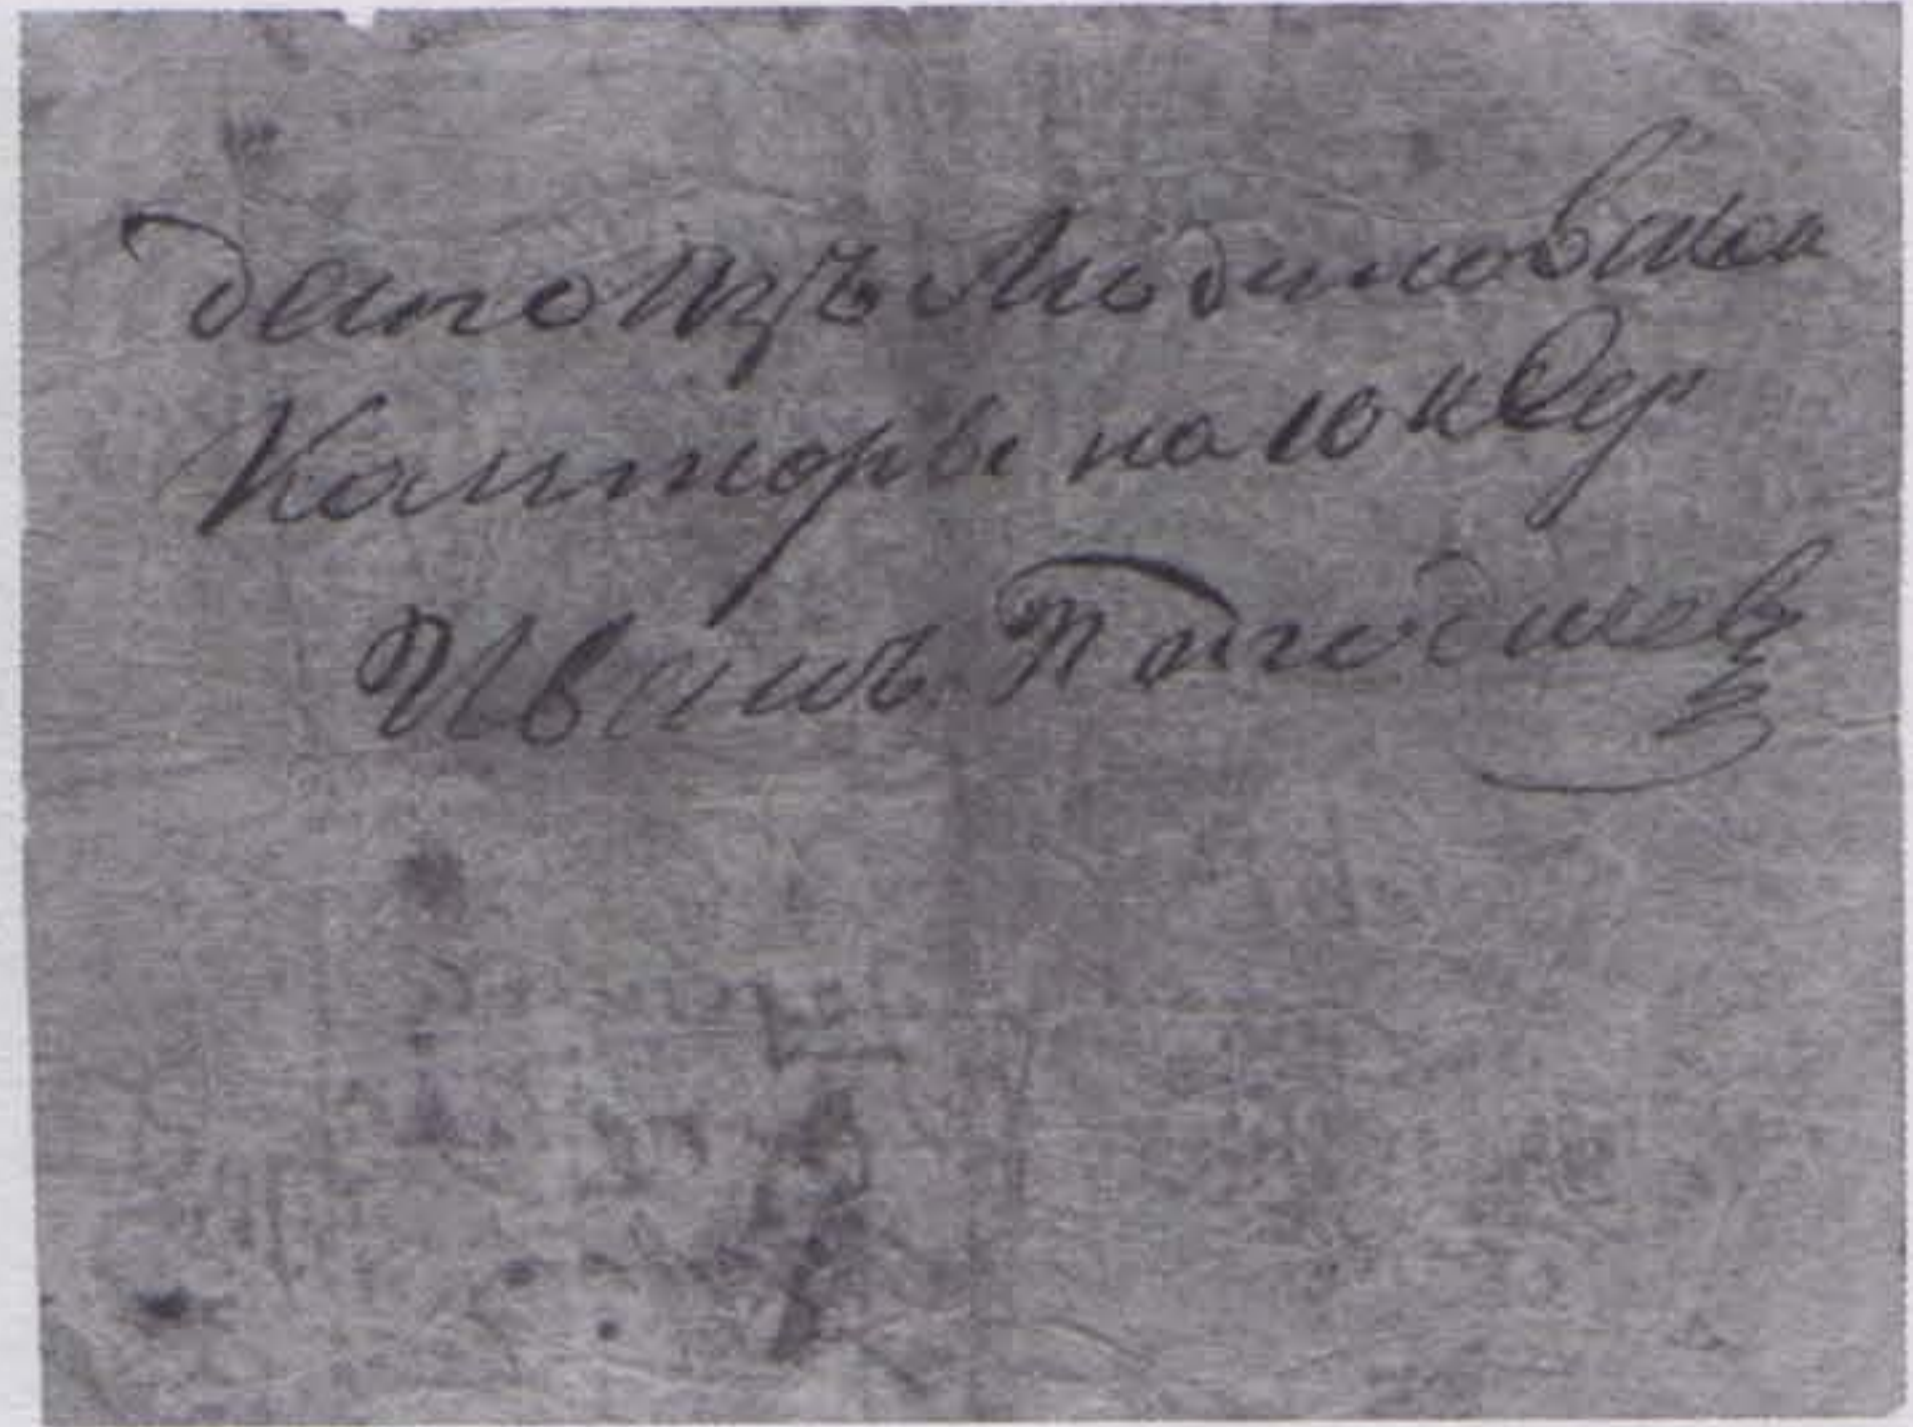 дано изъ Людиновской
Канторы на 10 к Сер
Иванъ Погодинъ